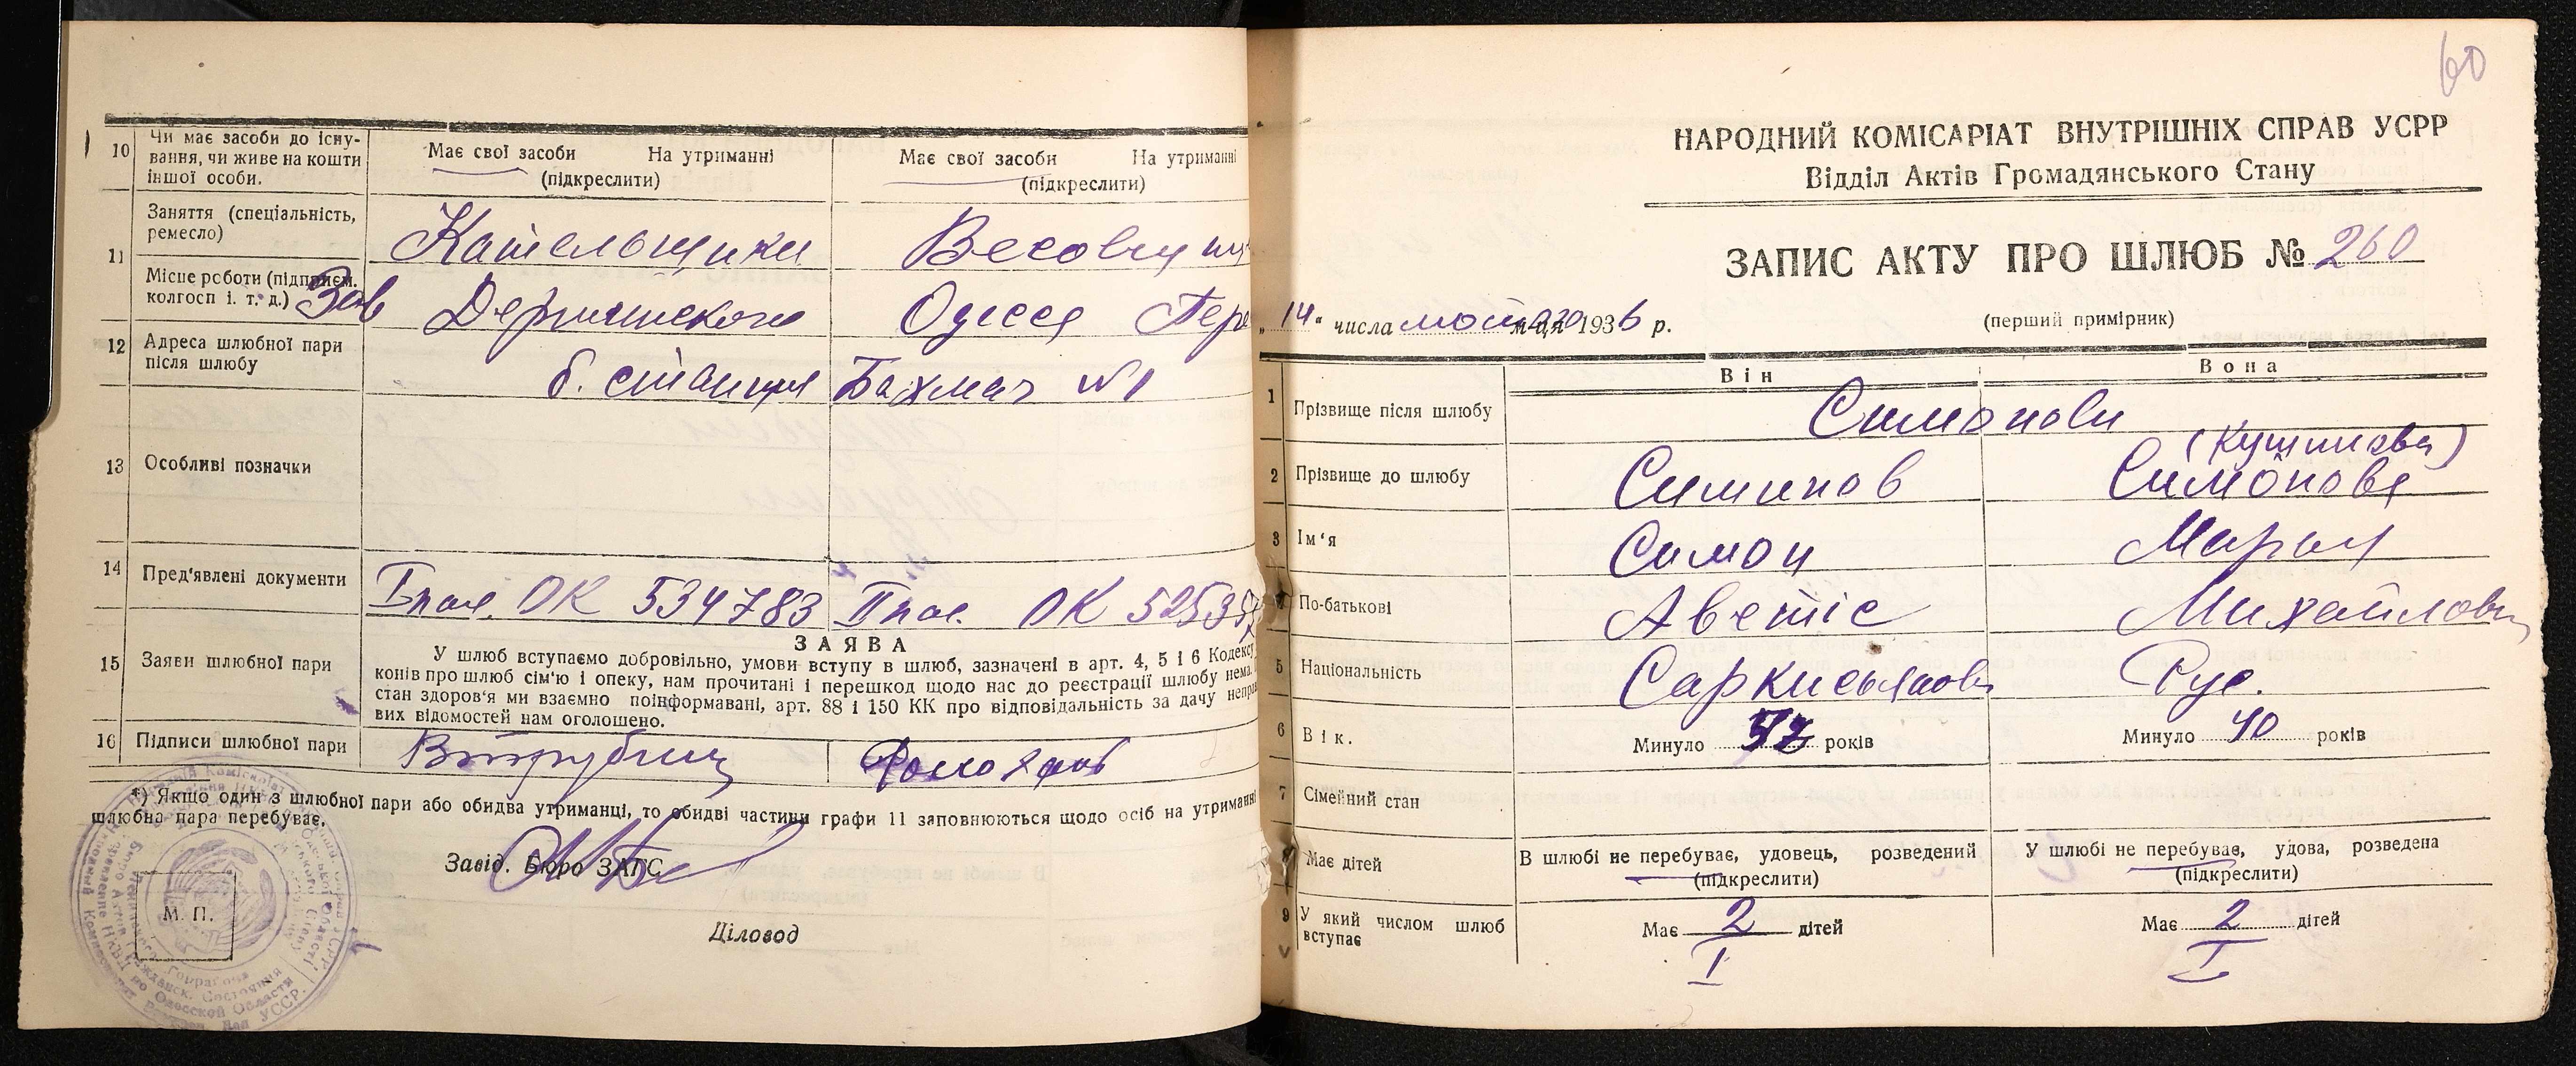 10 Чи має засоби до існу-
вання, чи живе на кошти
іншої особи.
Має свої засоби На утриманні
(підкреслити)
Має свої засоби На утриманні
(підкреслити)
11 Заняття (спеціальність,
ремесло)
Весовщ
Місце роботи (підприєм.
колгосп і. т. д.)
Зав
Одесса
12 Адреса шлюбної пари
після шлюбу
б. станция Бахмач №1
13 Особливі позначки
14 Пред'явлені документи
ОК 534783
ОК 5253
15 Заяви шлюбної пари
ЗАЯВА
У шлюб вступаємо добровільно, умови вступу в шлюб, зазначені в арт. 4, 5 і 6 Кодексу
конів про шлюб сім'ю і опеку, нам прочитані і перешкод щодо нас до реєстрації шлюбу нема.
стан здоров'я ми взаємно поінформавані, арт. 88 і 150 КК про відповідальність за дачу неправ
вих відомостей нам оголошено.
16 Підписи шлюбної пари
*) Якщо один з шлюбної пари або обидва утриманці, то обидві частини графи 11 заповнюються щодо осіб на утриманні
шлюбна пара перебуває.
Завід. Бюро ЗАГС
М. П.
Діловод
60
НАРОДНИЙ КОМІСАРІАТ ВНУТРІШНІХ СПРАВ УСРР
Відділ Актів Громадянського Стану
ЗАПИС АКТУ ПРО ШЛЮБ № 260
„14“ числа м-ця 1936 р.
(перший примірник)
Він
Вона
1 Прізвище після шлюбу
Симонови
2 Прізвище до шлюбу
Симонов
Симонова
3 Ім'я
Симон
Мария
По-батькові
Аветіс
Михайловн
5 Національність
Рус.
6 Вік.
Минуло років
Минуло 40 років
7 Сімейний стан
Має дітей
В шлюбі не перебуває, удовець, розведений
(підкреслити)
У шлюбі не перебуває, удова, розведена
(підкреслити)
9 У який числом шлюб
вступає
Має 2 дітей
I
Має 2 дітей
I